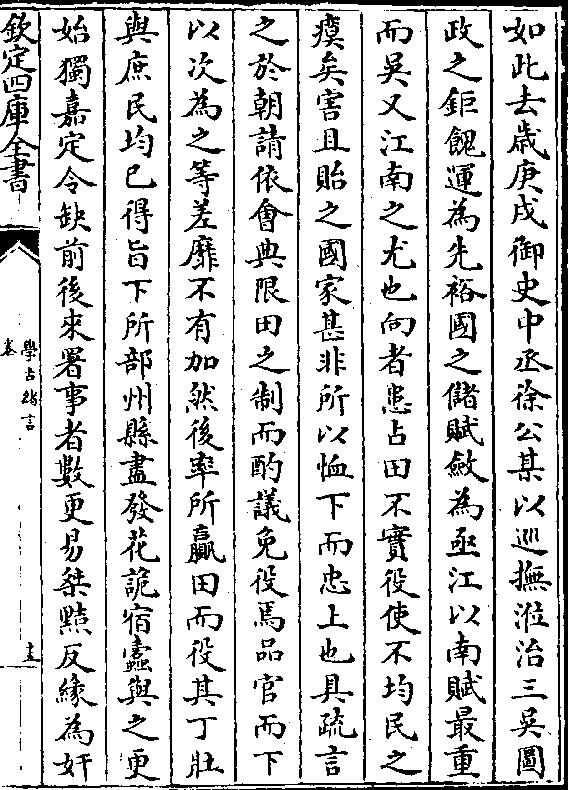 如此去歲庚戌御史中丞徐公某以巡撫涖治三吳圖
政之鉅餽運為先裕國之儲賦斂為亟江以南賦最重
而吳又江南之尤也向者患占田不實役使不均民之
瘼矣害且貽之國家甚非所以恤下而忠上也具疏言
之於朝請依會典限田之制而酌議免役焉品官而下
以次為之等差靡不有加然後率所贏田而役其丁壯
與庶民均已得旨下所部州縣盡發花詭宿蠹與之更
始獨嘉定令缺前後來署事者數更易桀黠反緣為奸
欽定四庫全書
學古緒言
卷